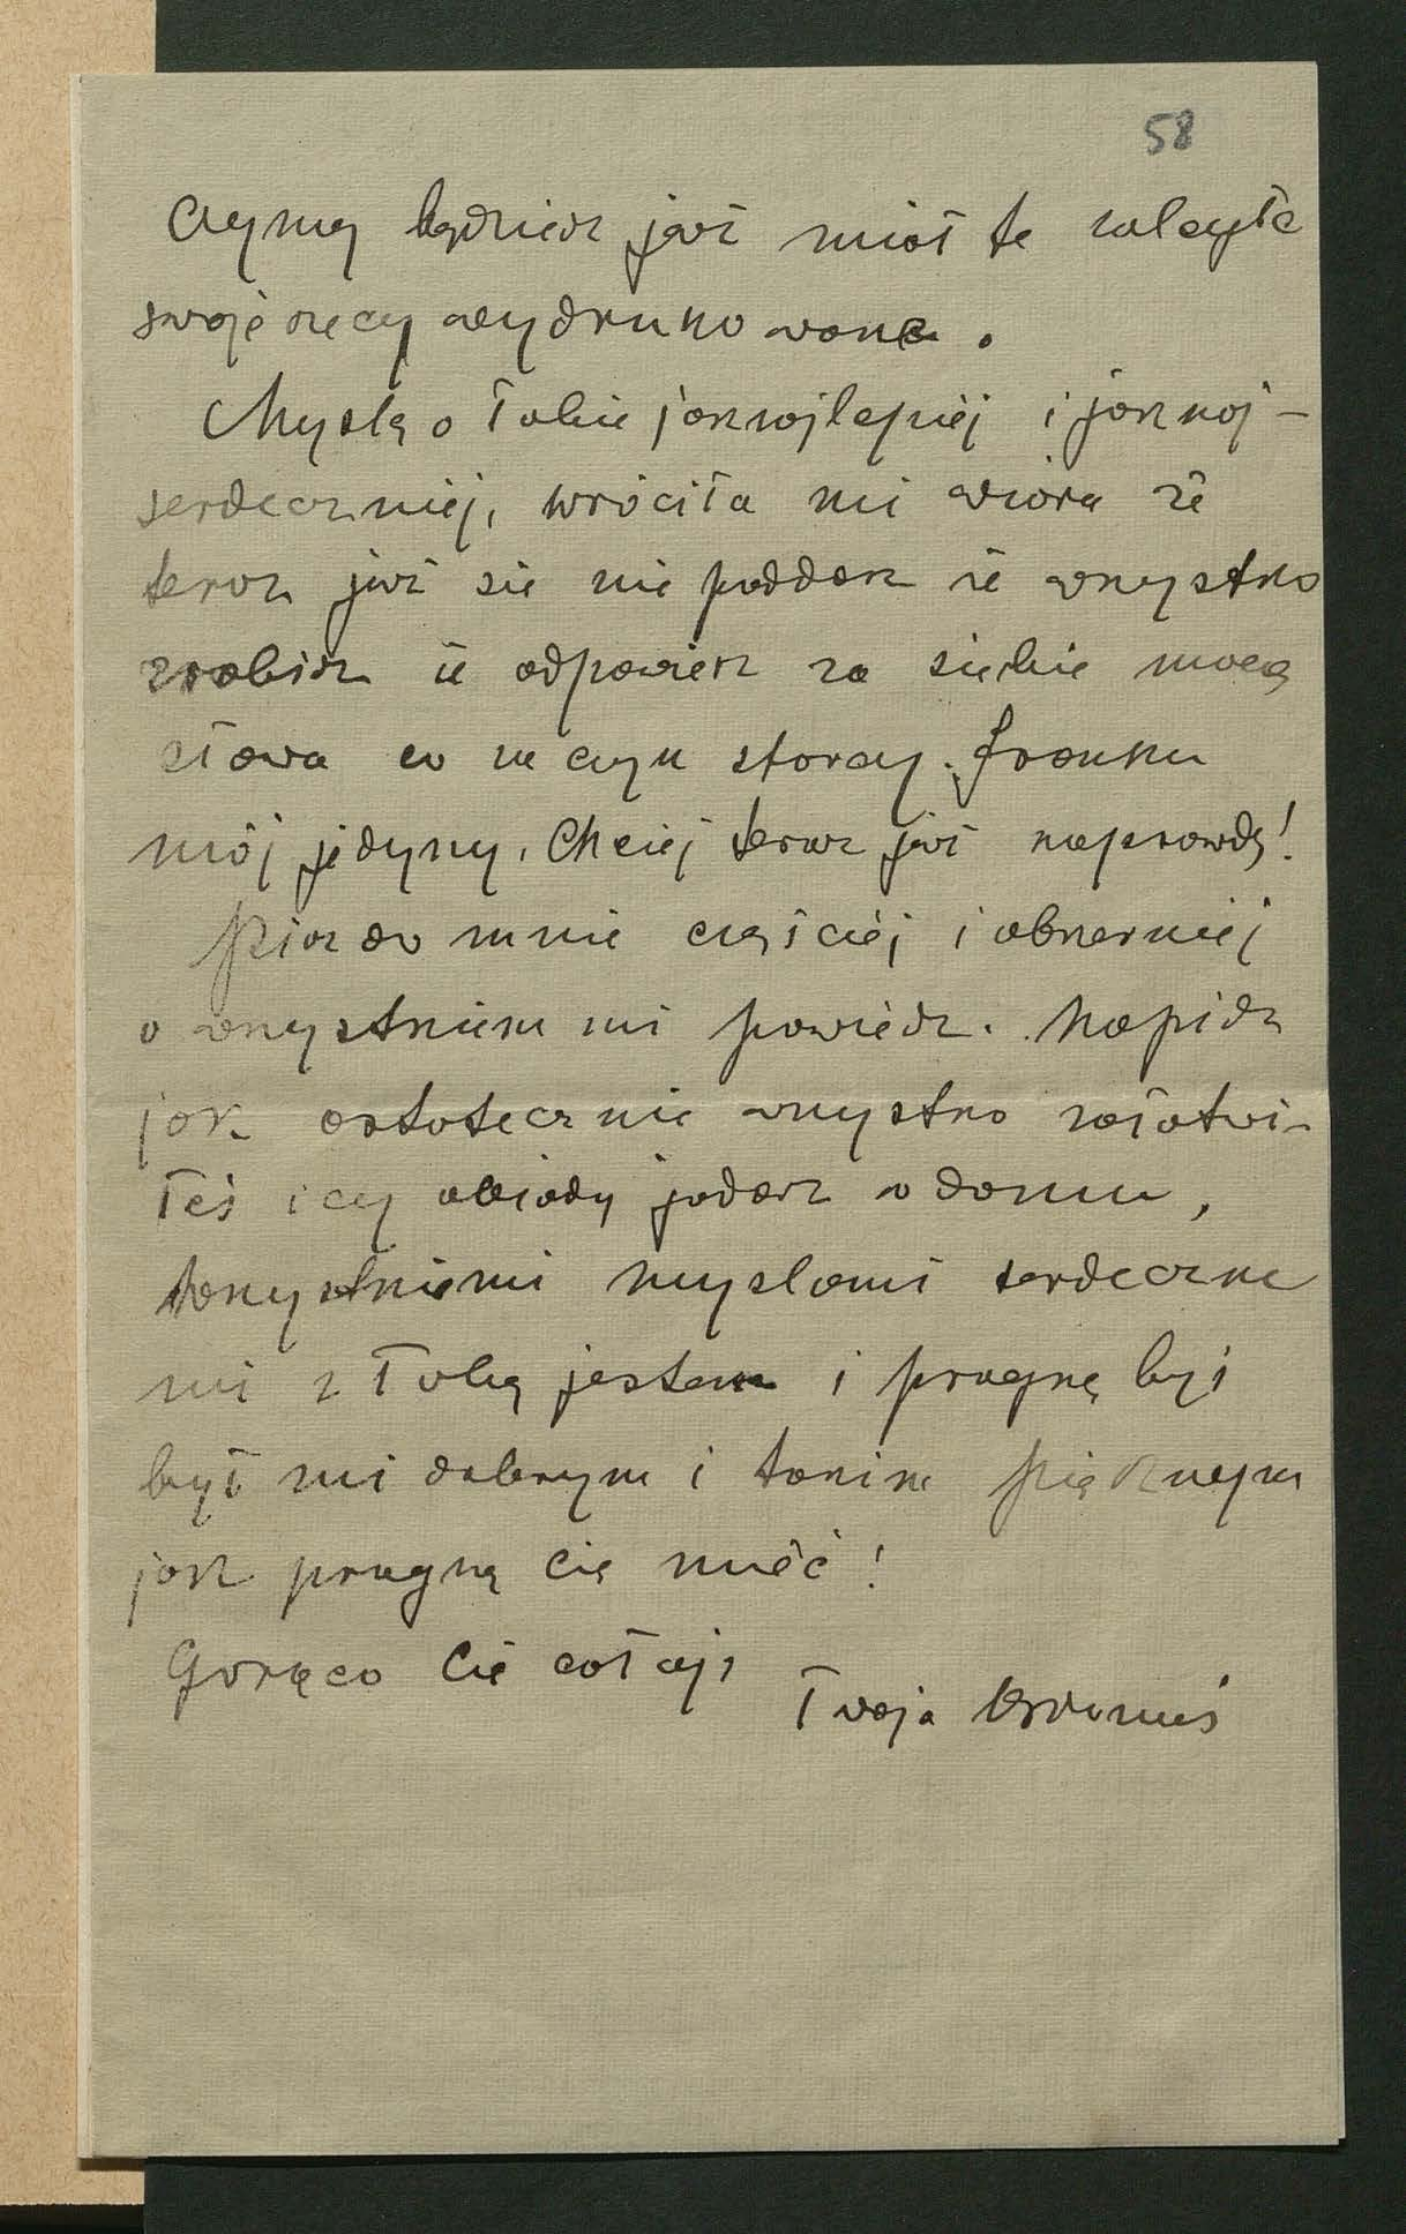 58
będziesz już miał te
swoje rzeczy wydrukowane.
Myślę o Tobie jaknajlepiej i jaknaj-
serdeczniej, wróciła mi wiara że
teraz już się nie poddasz że wszystko
zrobisz że odpowiesz za siebie mocą
słowa co za czyn starczy. Franku
mój jedyny. Chciej teraz już naprawdę!
Pisz do mnie częściej i obszerniej
o wszystkiem mi powiedz. Napisz
jak ostatecznie wszystko załatwi-
łeś i czy obiady jadasz w domu,
wszystkiemi myslami serdeczne
mi z Tobą jestem i pragnę byś
był mi dobrym i takim pięknym
jak pragnę cię mieć!
Gorąco Cię całuję
Twoja